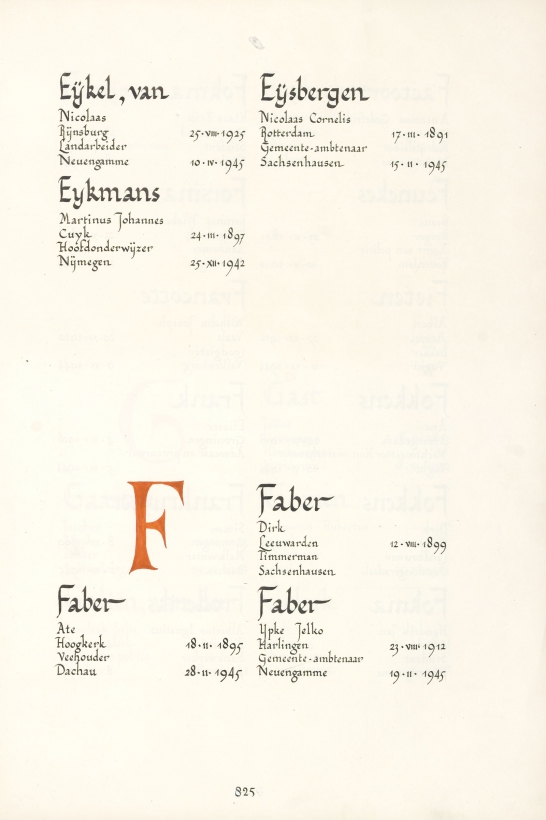 Eÿkel, van
Nicolaas
Rÿnsburg 25·VIII·1925
Landarbeider
Neuengamme 10·IV·1945
Eykmans
Martinus Johannes
Cuyk 24·III·1897
Hoofdonderwÿzer
Nÿmegen 25·XII·1942
Eÿsbergen
Nicolaas Cornelis
Rotterdam 17·III·1891
Gemeente-ambtenaar
Sachsenhausen 15·II·1945
F
Faber
Dirk
Leeuwarden 12·VIII·1899
Timmerman
Sachsenhausen
Faber
Ate
Hoogkerk 18·II·1895
Veehouder
Dachau 28·II·1945
Faber
Ypke Jelko
Harlingen 23·VIII·1912
Gemeente-ambtenaar
Neuengamme 19·II·1945
825